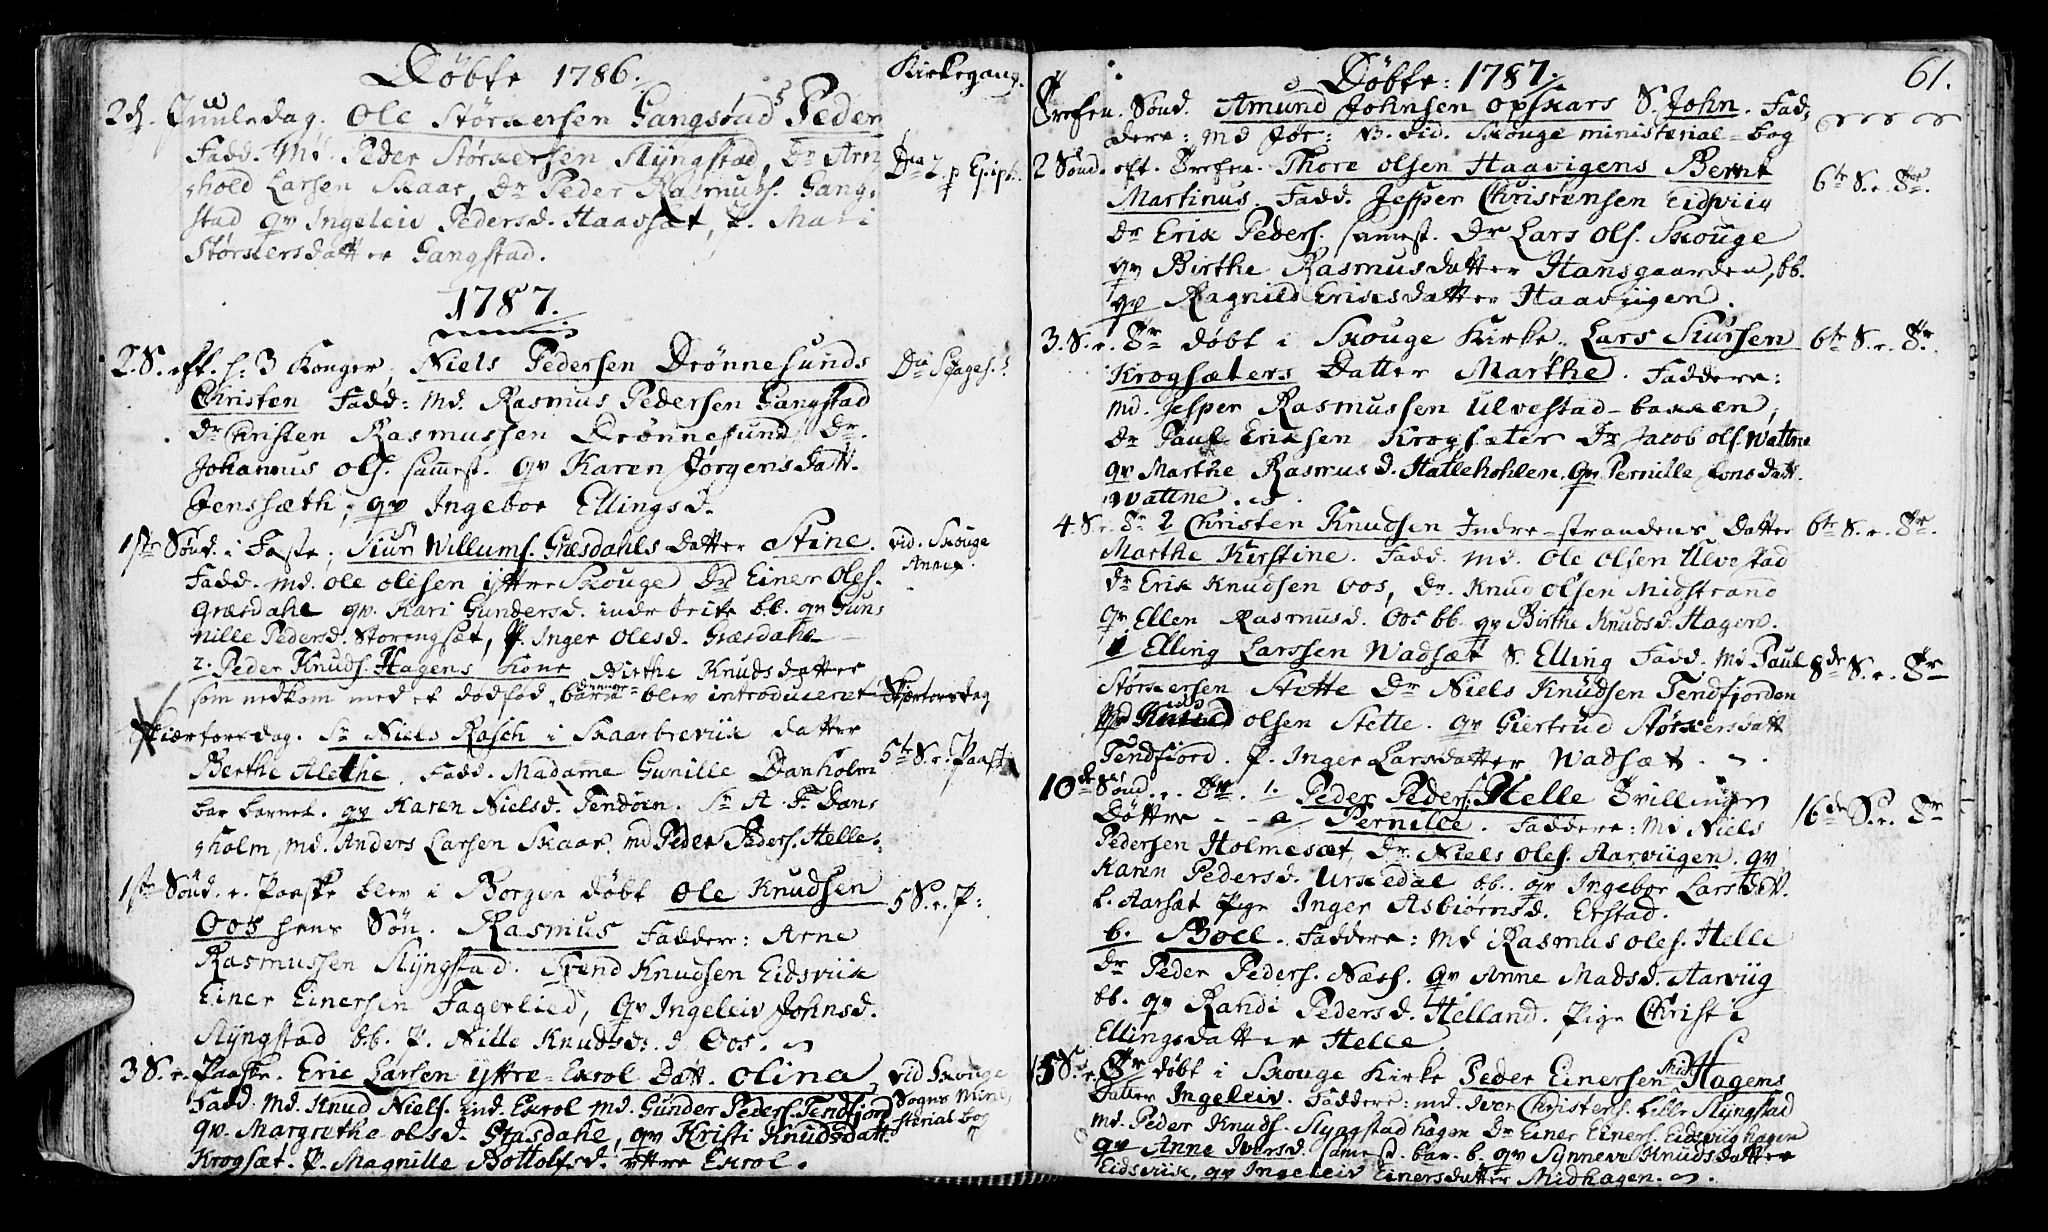 Döbte 1786.
Kirkegang.
2d. Juuledag. Ole Störkersen Gangstad S. Peder
Fadd. Md. Peder Störkersen Slÿngstad, Dr Arn
hold Larsen Skaar, Dr Peder Rasmuss. Gang-
stad qv Ingeleiv Pedersd. Haavsæt, P. Mari
Störkersdatter Gangstad.
Dca 2 p Epiph.
1787.
2. S. eft. h: 3 Konger, Niels Pedersen Drönnesunds
Christen Fadd: Md. Rasmus Pedersen Gangstad
Dr Christen Rasmussen Drönnesund, Dr.
Johannus Ols. samest. qv Karen Jörgensdatt.
Jenssæth, qv Ingebor Ellingsd.
1ste Sönd. i Faste, Siur Willums. Græsdahls datter Stine.
Fadd. Md. Ole Olesen ÿttre Skouge Dr Einer Oles.
Græsdahl qv. Kari Gundersd. indrebrite bb. qv Gun-
nille Pedersd. Storengsæt, P. Inger Olesd. Græsdahl
vid. Skouge
Annex.
2. Peder Knuds. Hagens Kone Birthe Knudsdatter
som nedkom med et dödföd barn blev introduceret Skiærtorsdag
Skiærtorsdag. Sr Niels Rasch i Skaarbreviik datter
Berthe Alethe. Fadd. Madame Gunille Danholm
bar barnet. qv Karen Nielsd. Tendöen. Sr A. F. Dan-
holm, Md. Anders Larsen Skaar, Md Peder Peders. Helle.
5te S. e. Paaske
1ste Sönd. e. Paaske blev i Borgen döbt Ole Knudsen
Oos hans Sön. Rasmus Faddere: Arne
Rasmussen Slÿngstad. Trend Knudsen Eidsviik
Einer Einersen Fagerlied, qv Ingeleiv Johnsd.
Slÿngstad bb. P. Nille Knudsd. Oos.
5 S. e. P:
3 S. e. Paaske. Eric Larsen ÿttre-Exrol Datt. Olina,
Fadd. Md. Knud Niels. ind. Exrol Md. Gunder Peders. Tendfjord
qv. Margrethe Olsd. Græsdahl, qv Kristi Knudsdatt.
Krogsæt. P. Magnille Bottolfsd. ÿttre Exrol.
vid Skouge
Sogns Mini-
sterial bog
Döbte: 1787.
61.
Trefen. Sönd. Amund Johnsen Opskars S. John. Fad-
dere: Md Jör: vid. Skouge ministerial-bog
2 Sönd. eft. Trefen. Thore Olsen Haavigens Bernt
Martinus. Fadd. Jesper Christensen Eidsviig
Dr Erik Peders. samest. Dr Lars Ols. Skouge
qv Birthe Rasmusdatter Hansgaarden, bb.
qv Ragnild Eriksdatter Haaviigen.
6te S. e. Tr.
3. S. e. Tr döbt i Skouge Kirke. Lars Siursen
Krogsæters Datter Marthe. Faddere:
Md. Jesper Rasmussen Ulvestad-bakken,
Dr Paul Eriksen Krogsæter Dr Jacob Ols. Wattne
qv Marthe Rasmusd. Hattlehohlen. qv Pernille Jonsdatt.
Wattne.
6te S. e. Tr
4. S. e. Tr 1. Christen Knudsen Indre-strandens Datter
Marthe Kirstine. Fadd. Md. Ole Olsen Ulvestad
Dr Erik Knudsen Oos, Dr. Knud Olsen Midstrand
qv Ellen Rasmusd. Oos bb. qv Birthe Knudsd. Hagen.
6te S. e. Tr.
Elling Larssen Wadsæt S. Elling Fadd. Md Paul
Störkersen Stette Dr Niels Knudsen Tendfjorden
Olsen Stette. qv Giertrud Störkersdatt
Tendfiord. P. Inger Larsdatter Wadsæt.
8de S. e. Tr
10de Sönd. e. Tr. 1. Peder Peders. Helle Tvillinger
Döttre - - a/ Pernille. Faddere: Md Niels
Pedersen Holmesæt, Dr. Niels Oles. Aarviigen. qv
Karen Pedersd. Urkedal bb. qv Ingebor Larsdatt.
l. Aarsæt Pige Inger Asbiörnsd. Erstad.
b. Boel. Faddere: Md Rasmus Oles. Helle
Dr Peder Peders. Næss. qv Anne Madsd. Aarviig
bb. qv Randi Pedersd. Helland. Pige Christi
Ellingsdatter Helle
16de S. e. Tr
15 S. e. Tr döbt i Skouge Kirke Peder Einersen Mid Hagens
Datter Ingeleiv. Faddere: Md. Iver Christens. lille Slÿngstad
Md. Peder Knuds. Slÿngstadhagen Dr Einer Einers. Eidsviighagen
qv Anne Iversd. samest. bar. b. qv Sÿnneve Knudsdatter
Eidsviik, qv Ingeleiv Einersdatter Midhagen.